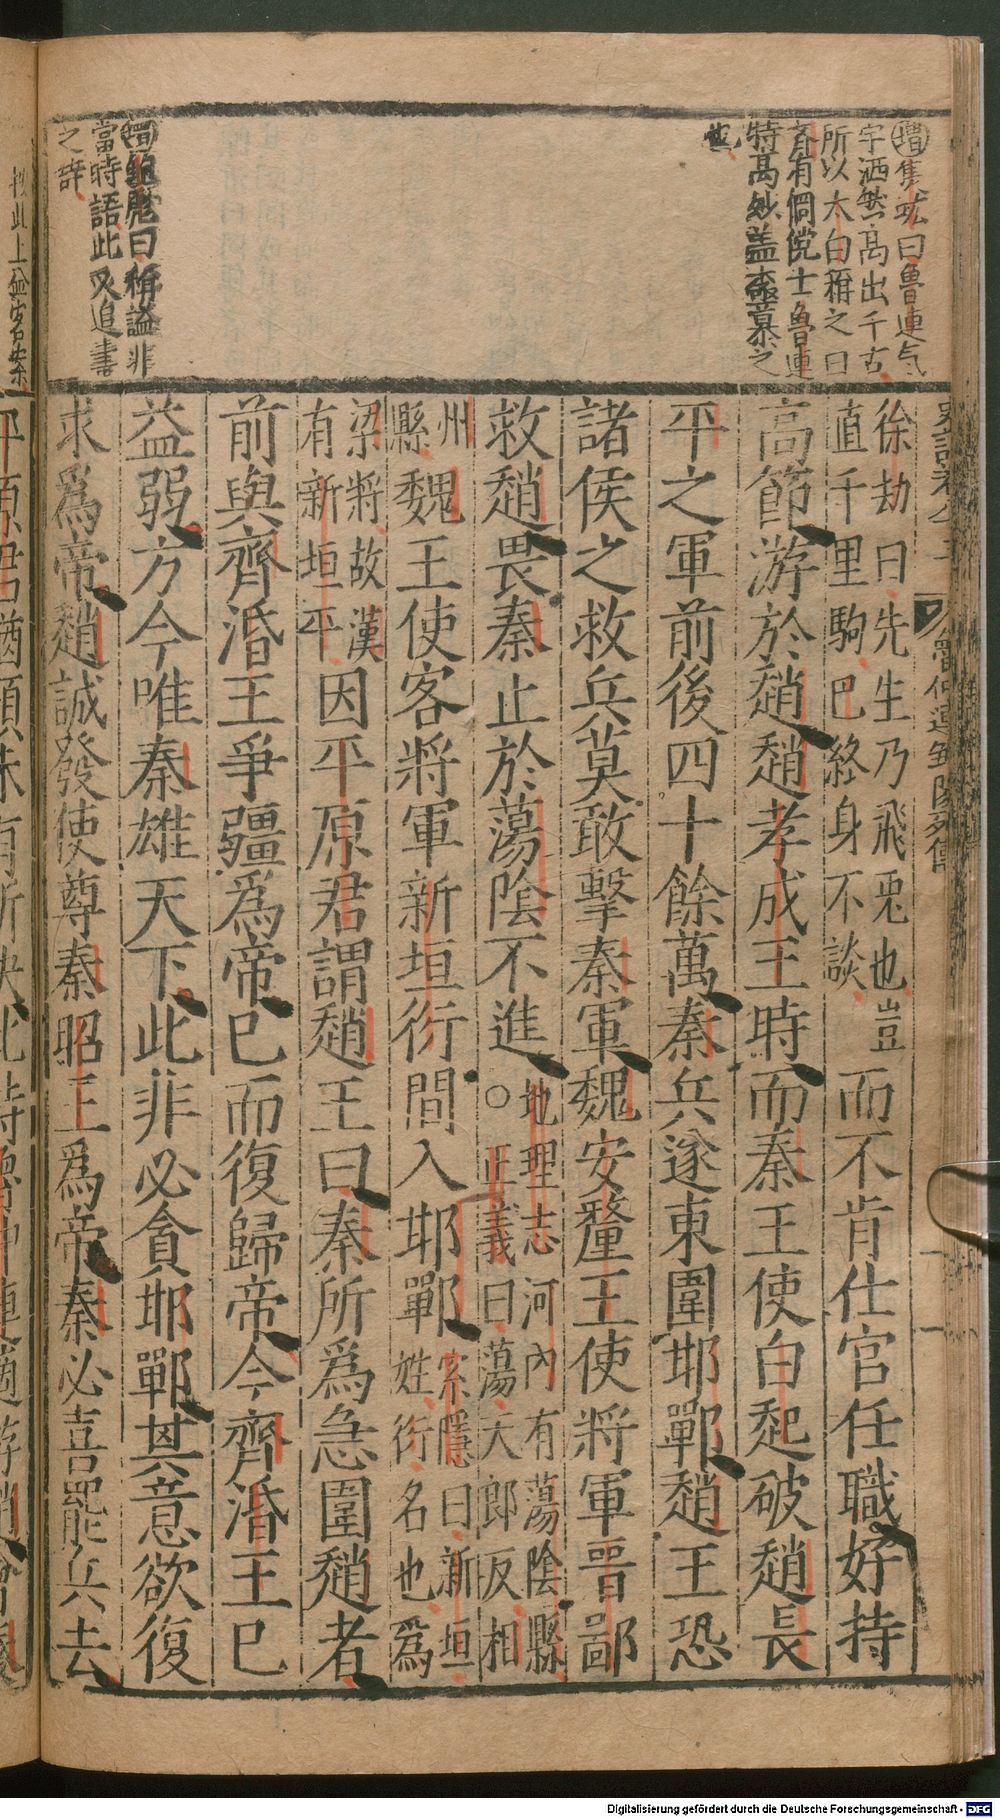 增隼㳺曰魯連气
宇洒然高出千古
所以太白稱之曰
齊有倜儻士魯連
特高妙盖不𭃨慕之
也
增鮑彪曰稱謚非
當時語此又追書
之辭
魯仲連鄒陽列傳
徐劫曰先生乃飛兎也豈
直千里駒巴終身不談
而不肯仕官任職好持
高節游於趙趙孝成王時而秦王使白起破趙長
平之軍前後四十餘萬秦兵遂東圍邯鄲趙王恐
諸侯之救兵莫敢擊秦軍魏安釐王使將軍晉鄙
救趙畏秦止於蕩陰不進○
地理志河內有蕩陰縣
正義曰蕩天郎反相
州
縣
魏王使客將軍新垣衍間入邯鄲
索隱曰新垣
姓衍名也爲
梁將故漢
有新垣平
因平原君謂趙王曰秦所爲急圍趙者
前與齊湣王爭彊爲帝巳而復歸帝今齊湣王巳
益弱方今唯秦雄天下此非必貪邯鄲其意欲復
求爲帝趙誠發使尊秦昭王爲帝秦必喜罷兵去
Digitalisierung gefördert durch die Deutsche Forschungsgemeinschaft - DFG